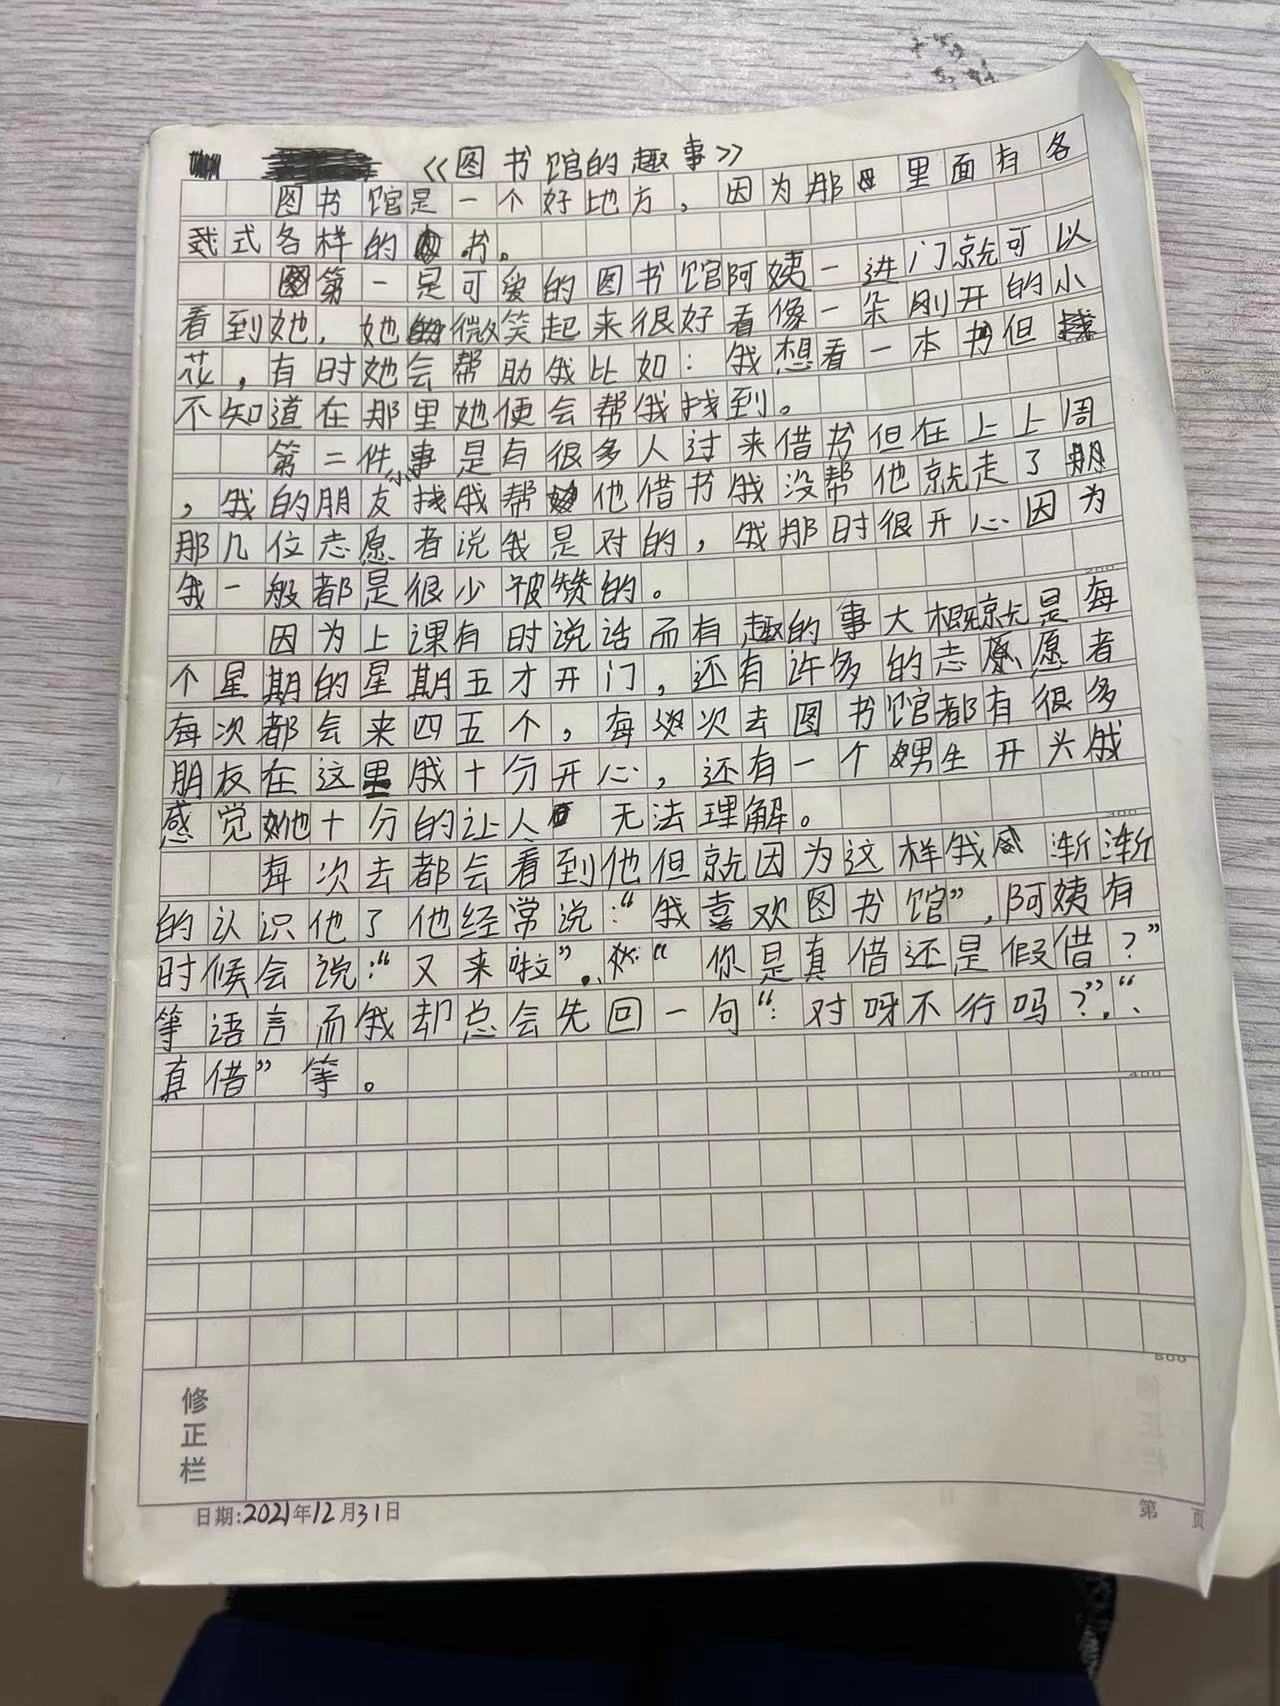 《图书馆的趣事》
图书馆是一个好地方，因为那里面有各
式各样的书。
第一是可爱的图书馆阿姨一进门就可以
看到她，她微笑起来很好看像一朵刚开的小
花，有时她会帮助我比如：我想看一本书但
不知道在那里她便会帮我找到。
第二件小事是有很多人过来借书但在上上周
，我的朋友找我帮他借书我没帮他就走了
那几位志愿者说我是对的，我那时很开心因为
我一般都是很少被赞的。
因为上课有时说话而有趣的事大概就是每
个星期的星期五才开门，还有许多的志愿者
每次都会来四五个，每次去图书馆都有很多
朋友在这里我十分开心，还有一个男生开头我
感觉他十分的让人无法理解。
每次去都会看到他但就因为这样我感渐渐
的认识他了他经常说：“我喜欢图书馆”，阿姨有
时候会说：“又来啦”.“你是真借还是假借？”
等语言而我却总会先回一句“：对呀不行吗？”.“
真借”等。
400
500
修
正
栏
日期:2021年12月31日
第 页